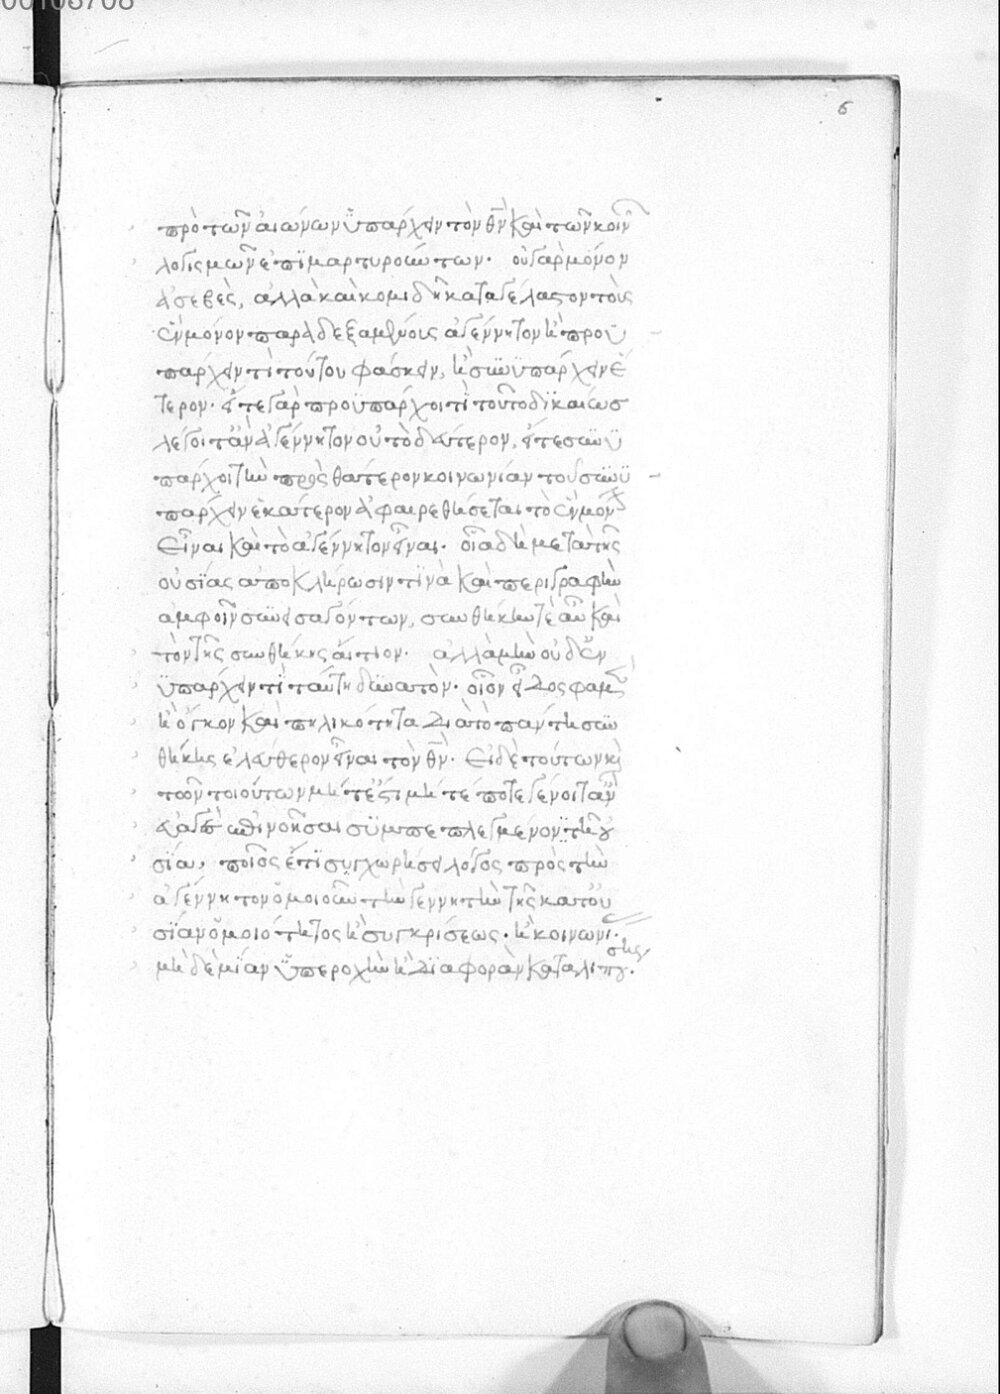 00108708
6
πρὸ τῶν αἰώνων ὑπάρχειν τὸν θν καὶ τῶν κοιν
λογισμῶν ἐπιμαρτυρούντων. οὐ γὰρ μόνον
ἀσεβὲς, ἀλλὰ καὶ κομιδῆ καταγέλαστον τοὺς
ἓν μόνον παραδεξαμένοις ἀγέννητον ἢ προϋ
πάρχειν τὶ τούτου φάσκειν, ἢ συνυπάρχειν ἕ
τερον. εἴτε γὰρ προϋπάρχοι τὶ τοῦτο δικαίως
λέγοιτ' ἂν ἀγέννητον οὐ τὸ δεύτερον, εἴτε συνϋ
πάρχοι τῆ πρὸς θάτερον κοινωνίαν τοῦ συνϋ
πάρχειν ἑκάτερον ἀφαιρεθήσεται τὸ ἓν μόνον
εἶναι καὶ τὸ ἀγέννητον εἶναι. οἷα δὴ μετὰ τῆς
οὐσίας ἀποκλήρωσιν τινὰ καὶ περιγραφὴν
ἀμφοῖν συνεισαγόντων, συνθήκην τὲ αὖ καὶ
τὸν τῆς συνθήκης αἴτιον. ἀλλὰ μὴν οὐδὲν
ὑπάρχειν τὶ ταύτη δυνατὸν. οἷον εἶδος φαμὲν
ἢ ὄγκον καὶ πηλικότητα διὰ τὸ πάντη συν
θήκης ἐλεύθερον εἶναι τὸν θν. Εἰ δὲ τούτων καὶ
τῶν τοιούτων μήτε ἔστι μήτε ποτε γένοιτ' ἂν
σία, ποῖος ἔτι συγχωρήσει λόγος πρὸς τὴν
ἀγέννητον ὁμοιοῦν τὴν γεννητὴν τῆς κατ' οὐ
σίαν ὁμοιότητος ἢ συγκρίσεως. ἢ κοινωνί.
μηδεμίαν ὑπεροχὴν ἢ διαφορὰν καταλιπού.
σης